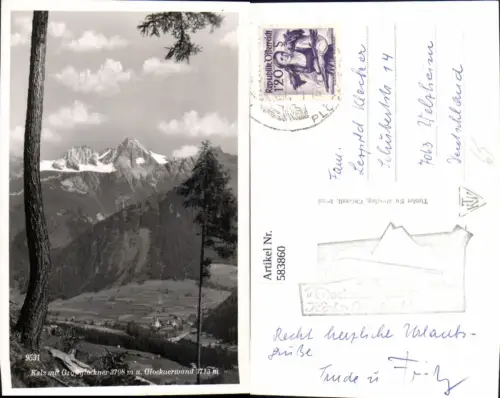 9531
Kals mit Großglockner 3798 m u. Glocknerwand 3715 m
Republik Österreich
1.20 S
Fam.
Leopold
Schubertstr 14
7063 Welzheim
Deutschland
Artikel Nr.
583860
Recht herzliche Urlaubs-
grüße
Trude u Fritz